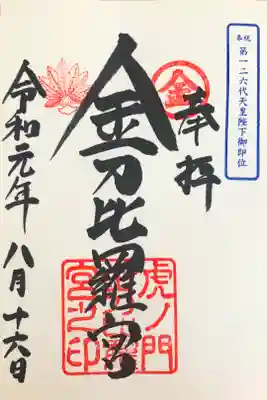 奉祝
第一二六代天皇陛下御即位
奉拝
金
金刀比羅宮
虎ノ門
宮之印
令和元年八月十六日